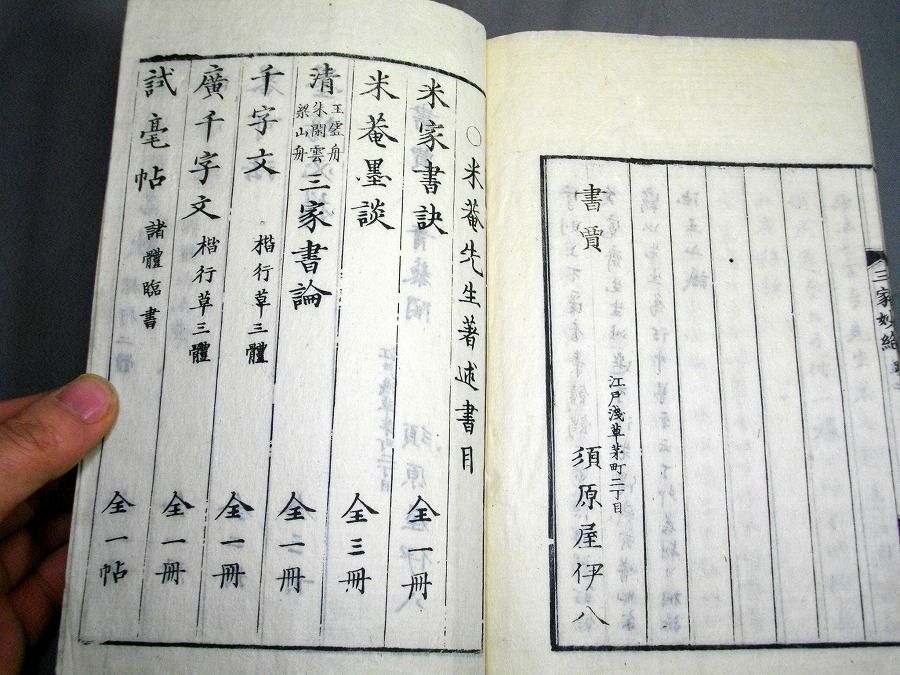 三家妙絶
書賈
江戶淺草茅町二丁目
須原屋伊八
○米菴先生著述書目
米家書訣 全一冊
米菴墨談 全三冊
清 王虛舟 朱閑雲 梁山舟 三家書論 全一冊
千字文 楷行草三體 全一冊
廣千字文 楷行草三體 全一冊
試毫帖 諸體臨書 全一帖